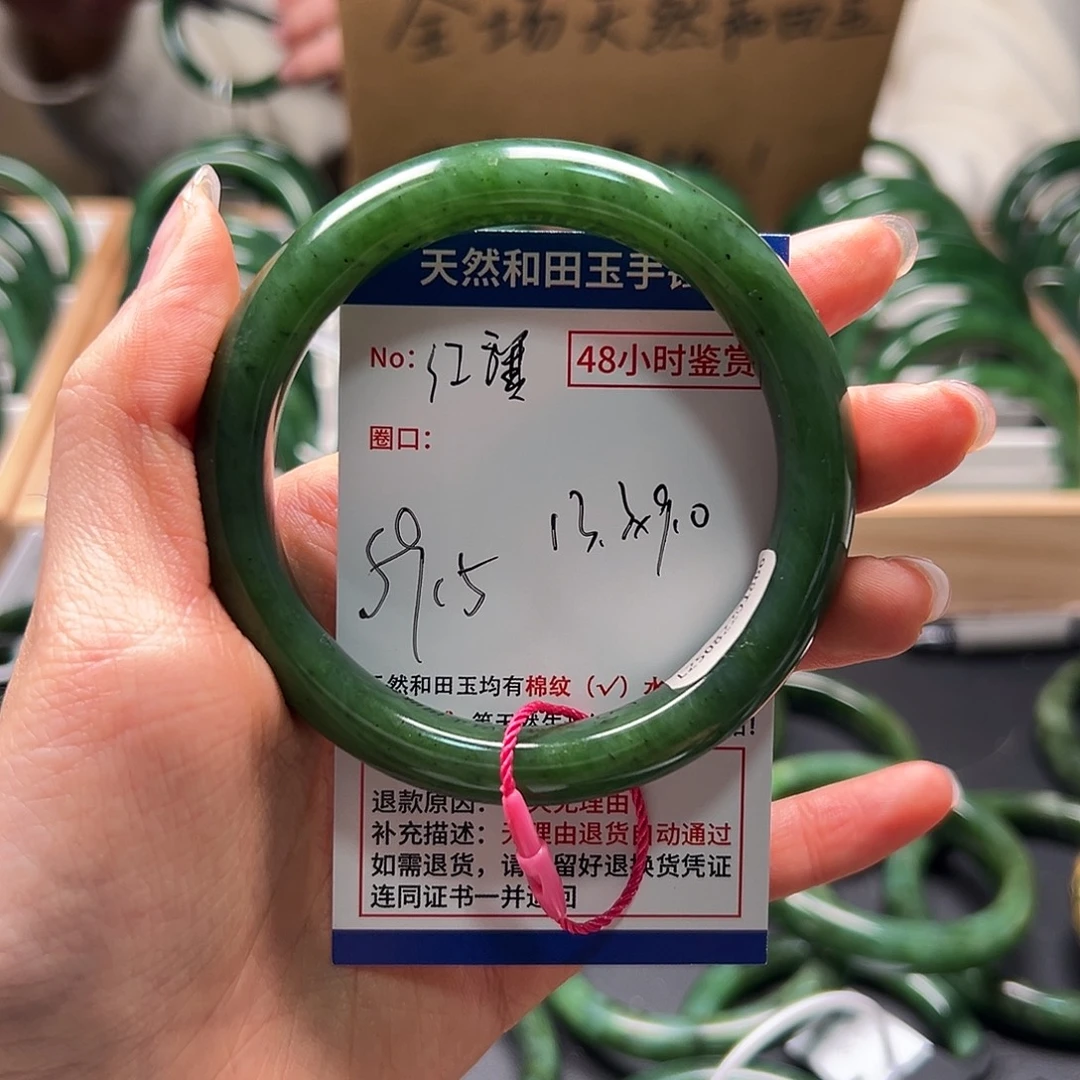 全场天然和田玉
天然和田玉手
No: 红旗
48小时鉴赏
圈口:
59.5
13.3x9.0
然和田玉均有棉纹（✓）水
退款原因:
无理由
补充描述: 理由退货自动通过
如需退货，请留好退换货凭证
连同证书一并退回